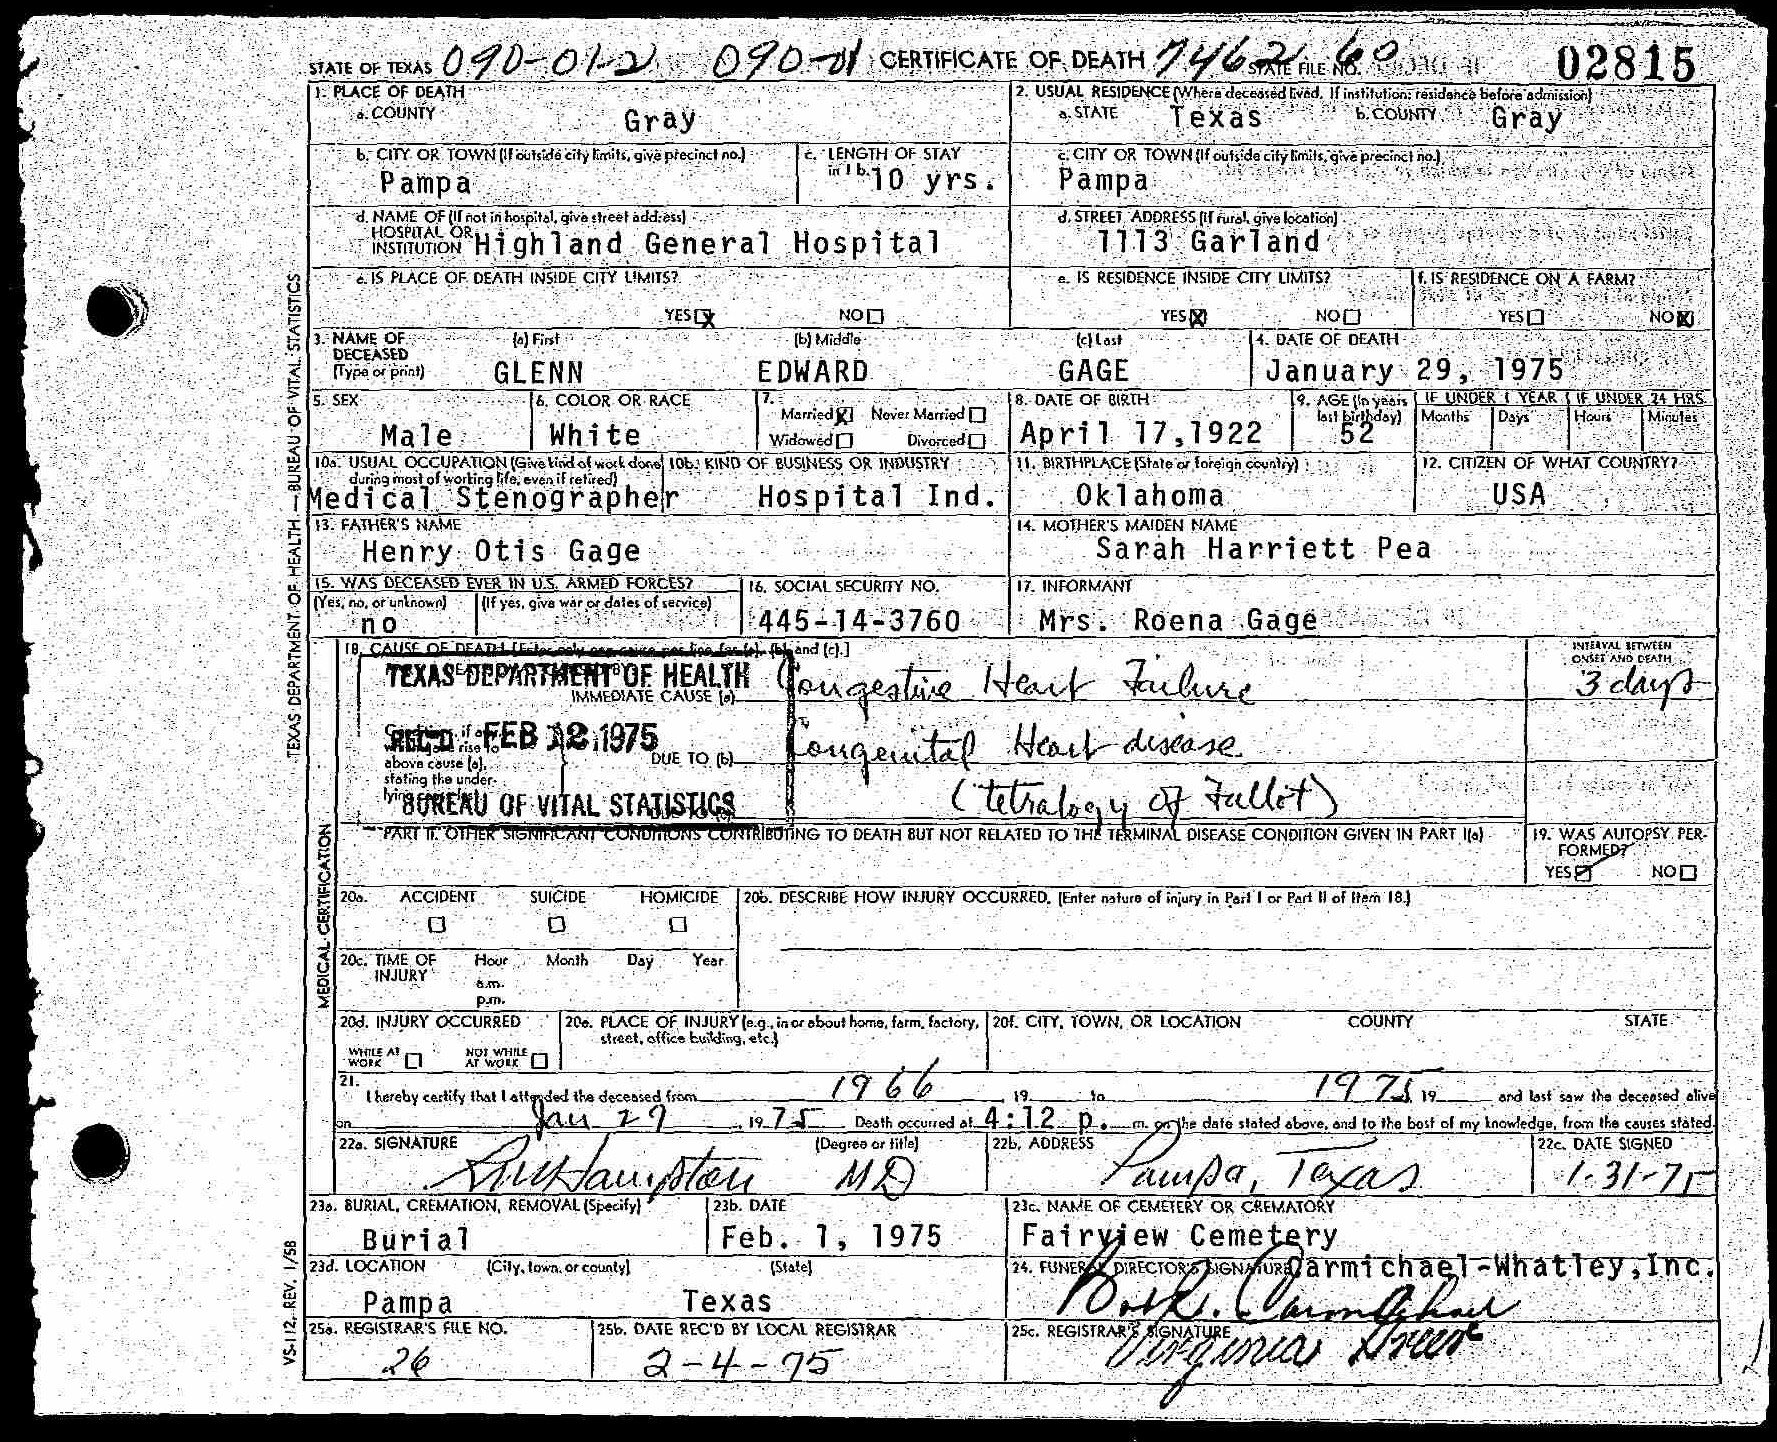 STATE OF TEXAS 090-01-2 090-01 CERTIFICATE OF DEATH 7462 60 STATE FILE NO. 02815
1. PLACE OF DEATH
a. COUNTY Gray
2. USUAL RESIDENCE (Where deceased lived. If institution: residence before admission)
a. STATE Texas b. COUNTY Gray
b. CITY OR TOWN (If outside city limits, give precinct no.) Pampa
c. LENGTH OF STAY in 1 b. 10 yrs.
c. CITY OR TOWN (If outside city limits, give precinct no.) Pampa
d. NAME OF (If not in hospital, give street address) HOSPITAL OR INSTITUTION Highland General Hospital
d. STREET ADDRESS (If rural, give location) 1113 Garland
e. IS PLACE OF DEATH INSIDE CITY LIMITS?
YES ☒ NO ☐
e. IS RESIDENCE INSIDE CITY LIMITS?
YES ☒ NO ☐
f. IS RESIDENCE ON A FARM?
YES ☐ NO ☒
3. NAME OF DECEASED (Type or print)
(a) First (b) Middle (c) Last
GLENN EDWARD GAGE
4. DATE OF DEATH
January 29, 1975
5. SEX
Male
6. COLOR OR RACE
White
7. Married ☒ Never Married ☐
Widowed ☐ Divorced ☐
8. DATE OF BIRTH
April 17,1922
9. AGE (In years last birthday)
52
IF UNDER 1 YEAR IF UNDER 24 HRS
Months Days Hours Minutes
10a. USUAL OCCUPATION (Give kind of work done during most of working life, even if retired)
Medical Stenographer
10b. KIND OF BUSINESS OR INDUSTRY
Hospital Ind.
11. BIRTHPLACE (State or foreign country)
Oklahoma
12. CITIZEN OF WHAT COUNTRY?
USA
13. FATHER'S NAME
Henry Otis Gage
14. MOTHER'S MAIDEN NAME
Sarah Harriett Pea
15. WAS DECEASED EVER IN U.S. ARMED FORCES?
(Yes, no, or unknown) (If yes, give war or dates of service)
no
16. SOCIAL SECURITY NO.
445-14-3760
17. INFORMANT
Mrs. Roena Gage
18. CAUSE OF DEATH [Enter only one cause per line for (a), (b), and (c).]
INTERVAL BETWEEN ONSET AND DEATH
TEXAS DEPARTMENT OF HEALTH
IMMEDIATE CAUSE (a) Congestive Heart Failure 3 days
REC'D FEB 12 1975
above cause (a), stating the under-
DUE TO (b) Congenital Heart disease
BUREAU OF VITAL STATISTICS
(tetralogy of Fallot)
PART II. OTHER SIGNIFICANT CONDITIONS CONTRIBUTING TO DEATH BUT NOT RELATED TO THE TERMINAL DISEASE CONDITION GIVEN IN PART I(a)
19. WAS AUTOPSY PERFORMED?
YES ☑ NO ☐
20a. ACCIDENT SUICIDE HOMICIDE
☐ ☐ ☐
20b. DESCRIBE HOW INJURY OCCURRED. (Enter nature of injury in Part I or Part II of Item 18.)
20c. TIME OF INJURY Hour Month Day Year
a.m.
p.m.
20d. INJURY OCCURRED
WHILE AT WORK ☐ NOT WHILE AT WORK ☐
20e. PLACE OF INJURY (e.g., in or about home, farm, factory, street, office building, etc.)
20f. CITY, TOWN, OR LOCATION COUNTY STATE
21.
I hereby certify that I attended the deceased from 1966 , 19 to 1975, 19 and last saw the deceased alive
on Jan 29 , 1975 Death occurred at 4:12 p. m. on the date stated above, and to the best of my knowledge, from the causes stated.
22a. SIGNATURE (Degree or title)
Hampton MD
22b. ADDRESS
Pampa, Texas
22c. DATE SIGNED
1-31-75
23a. BURIAL, CREMATION, REMOVAL (Specify)
Burial
23b. DATE
Feb. 1, 1975
23c. NAME OF CEMETERY OR CREMATORY
Fairview Cemetery
23d. LOCATION (City, town, or county) (State)
Pampa Texas
24. FUNERAL DIRECTOR'S SIGNATURE Carmichael-Whatley,Inc.
Carmichael
25a. REGISTRAR'S FILE NO.
26
25b. DATE REC'D BY LOCAL REGISTRAR
2-4-75
25c. REGISTRAR'S SIGNATURE
Virginia
TEXAS DEPARTMENT OF HEALTH — BUREAU OF VITAL STATISTICS
MEDICAL CERTIFICATION
VS-112, REV. 1/58